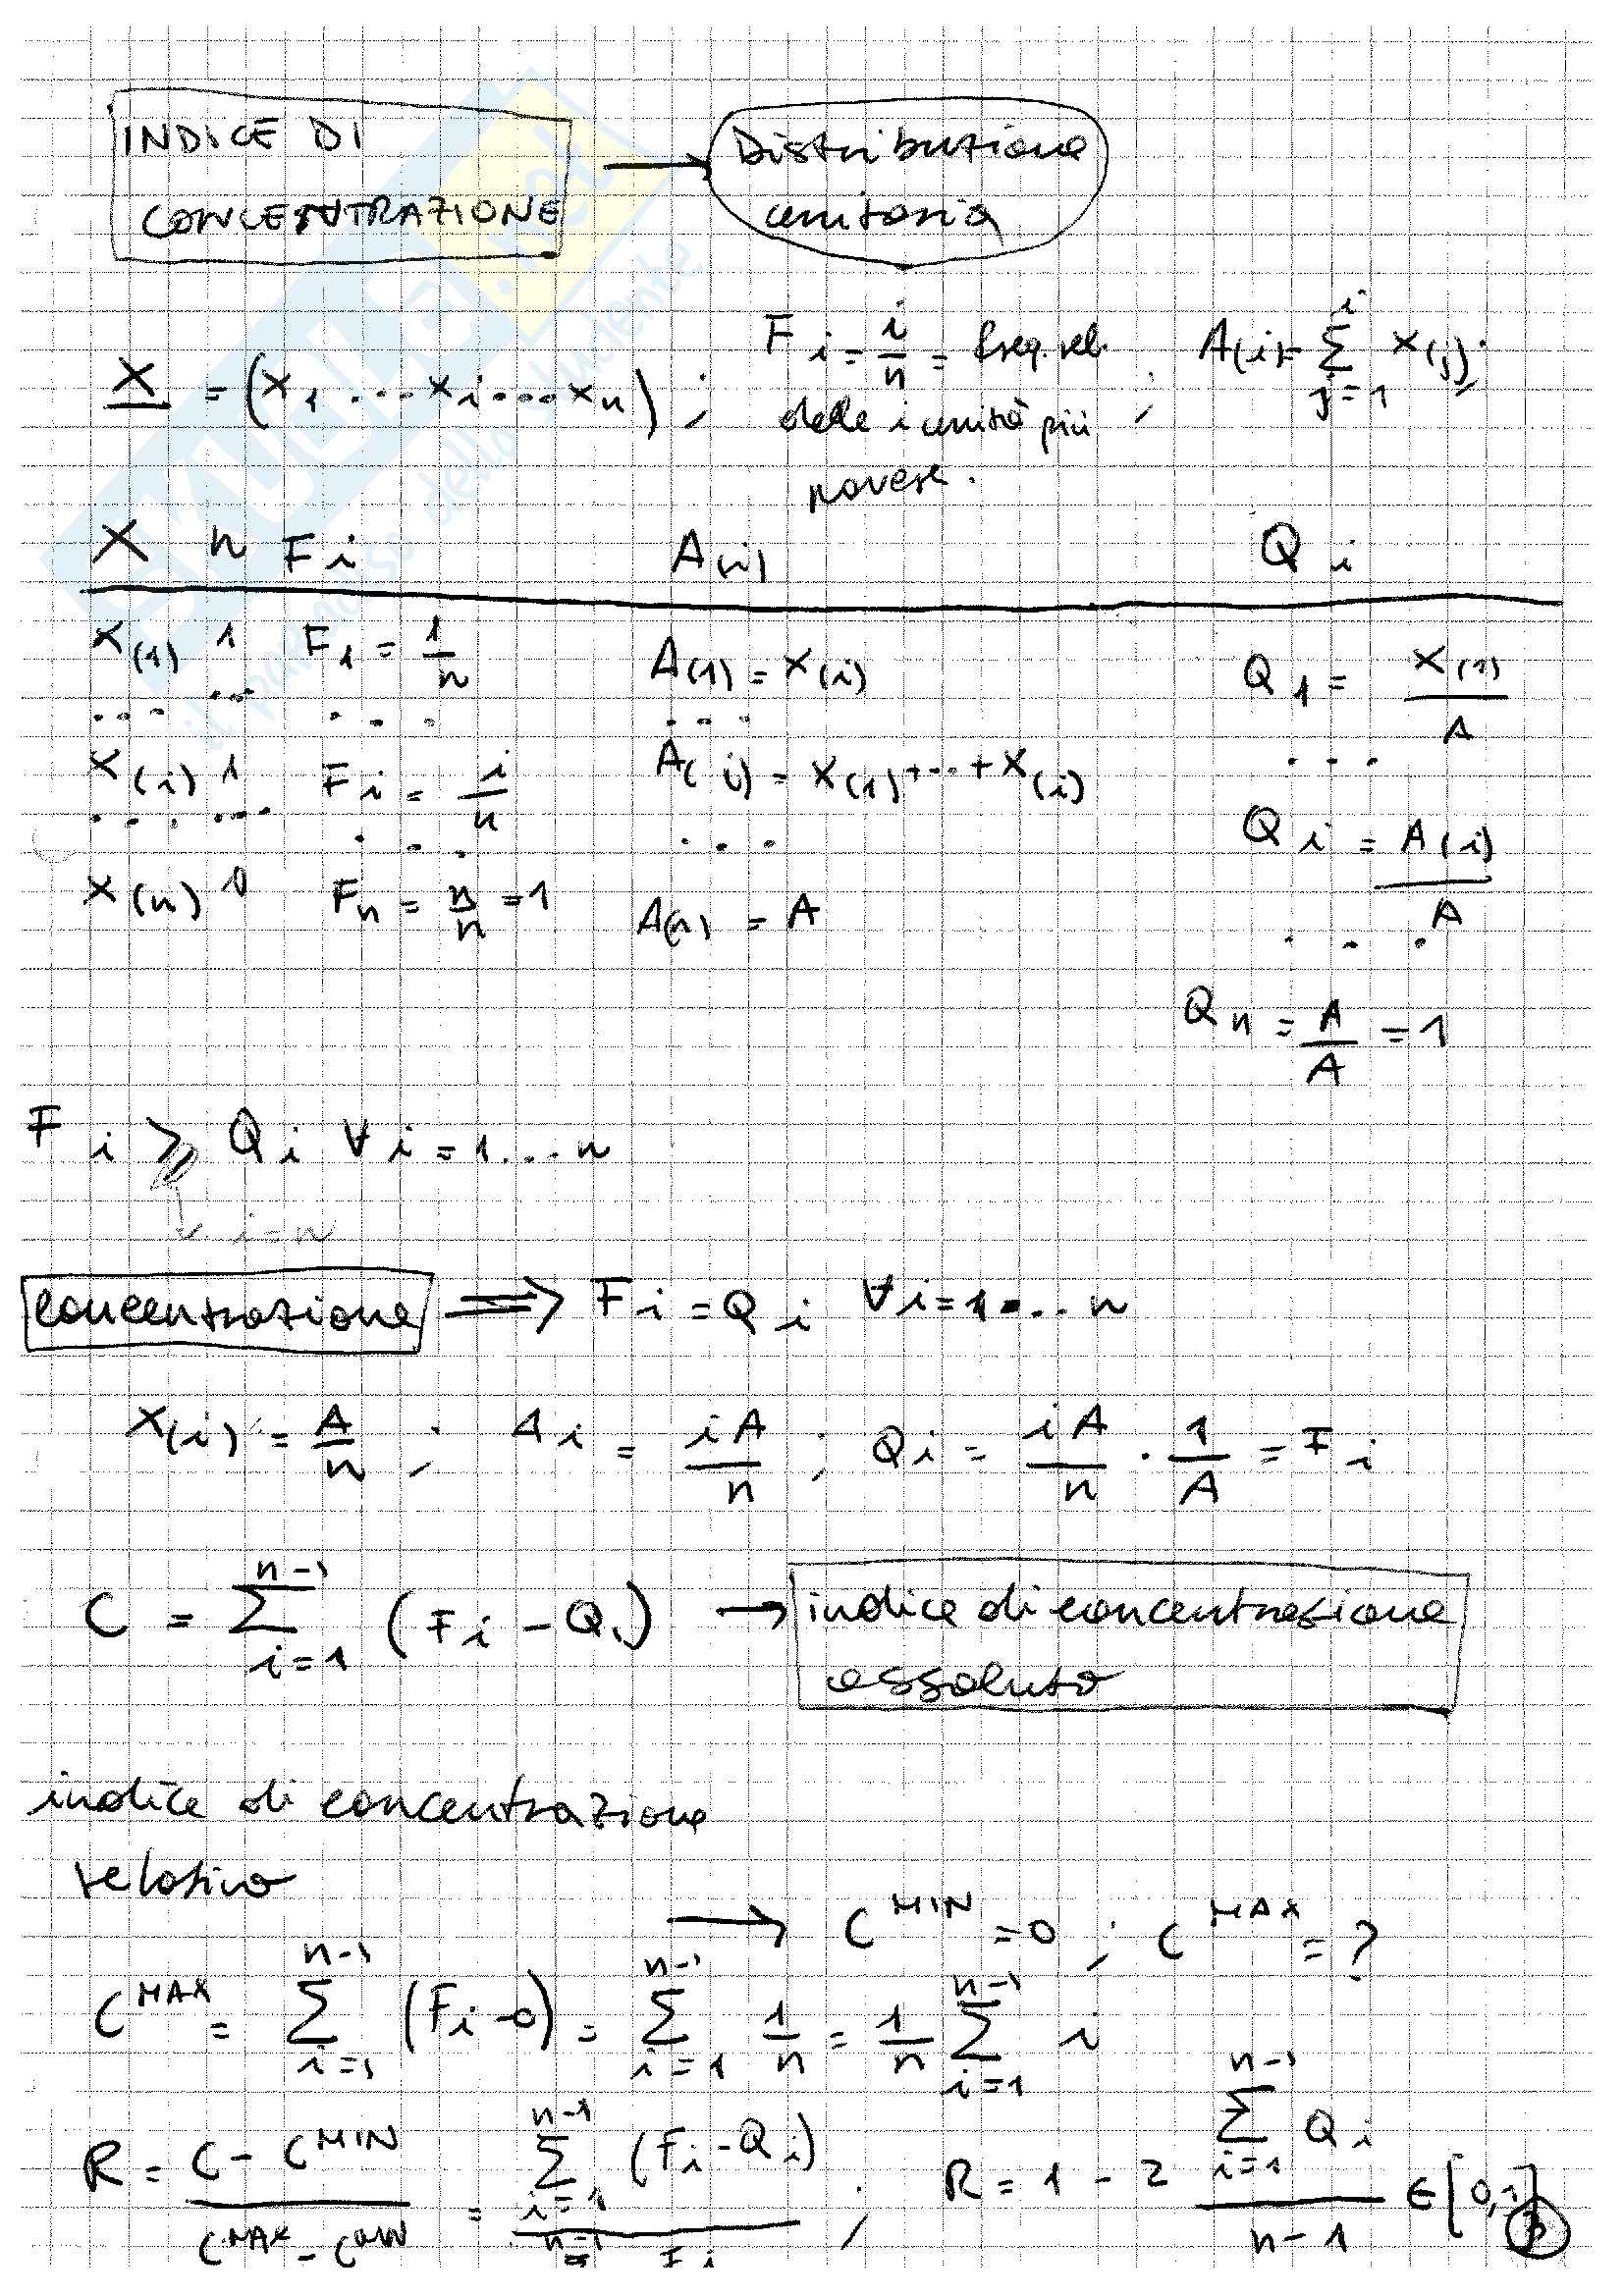 INDICE DI
CONCENTRAZIONE → Distribuzione
unitaria
X = (x₁ ... xᵢ ... xₙ) ; Fᵢ = i/n = freq. rel. delle i unità più povere. ; A(i) = Σ_{j=1}^{i} x(j).
X n Fi A(i) Qi
x(1) 1 F₁ = 1/n A(1) = x(i) Q₁ = x(1)/A
... ... ... ... ...
x(i) 1 Fi = i/n A(i) = x(1) + ... + x(i) Qi = A(i)/A
... ... ... ... ...
x(n) 1 Fn = n/n = 1 A(n) = A Qn = A/A = 1
Fi ≥ Qi ∀i = 1...n
i=n
concentrazione ⟹ Fi = Qi ∀i = 1...n
x(i) = A/n ; Ai = iA/n ; Qi = iA/n · 1/A = Fi
C = Σ_{i=1}^{n-1} (Fi - Qi) → indice di concentrazione
assoluto
indice di concentrazione
relativo
→ C^MIN = 0 ; C^MAX = ?
C^MAX = Σ_{i=1}^{n-1} (Fi - 0) = Σ_{i=1}^{n-1} 1/n = 1/n Σ_{i=1}^{n-1} i
R = (C - C^MIN)/(C^MAX - C^MIN) = Σ_{i=1}^{n-1} (Fi - Qi) / Σ^{n-1} Fi ; R = 1 - 2 Σ_{i=1}^{n-1} Qi / (n-1) ∈ [0,1]